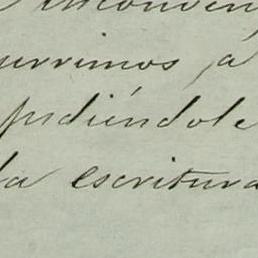 inconven
urrimos, á
pidiéndole
la escritura